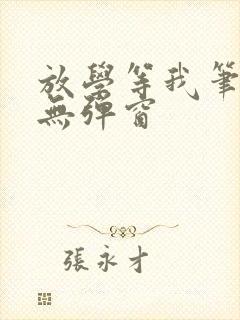 放學等我筆
無彈窗
張永才